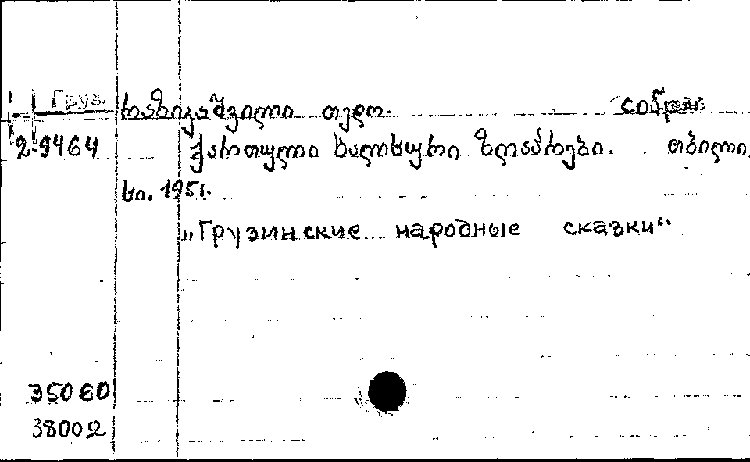 Груз. რაზიკაშვილი თედო. собрал
2-9464 ქართული ხალხური ზღაპრები. თბილი
სი. 1951.
„Грузинские народные сказки“
35060
38002